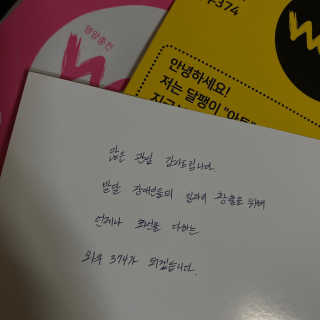 영양충전
374
안녕하세요!
저는 달팽이 "아트
많은 관심 감사드립니다.
발달 장애인들의 일자리 창출을 위해
언제나 최선을 다하는
와우 374가 되겠습니다.